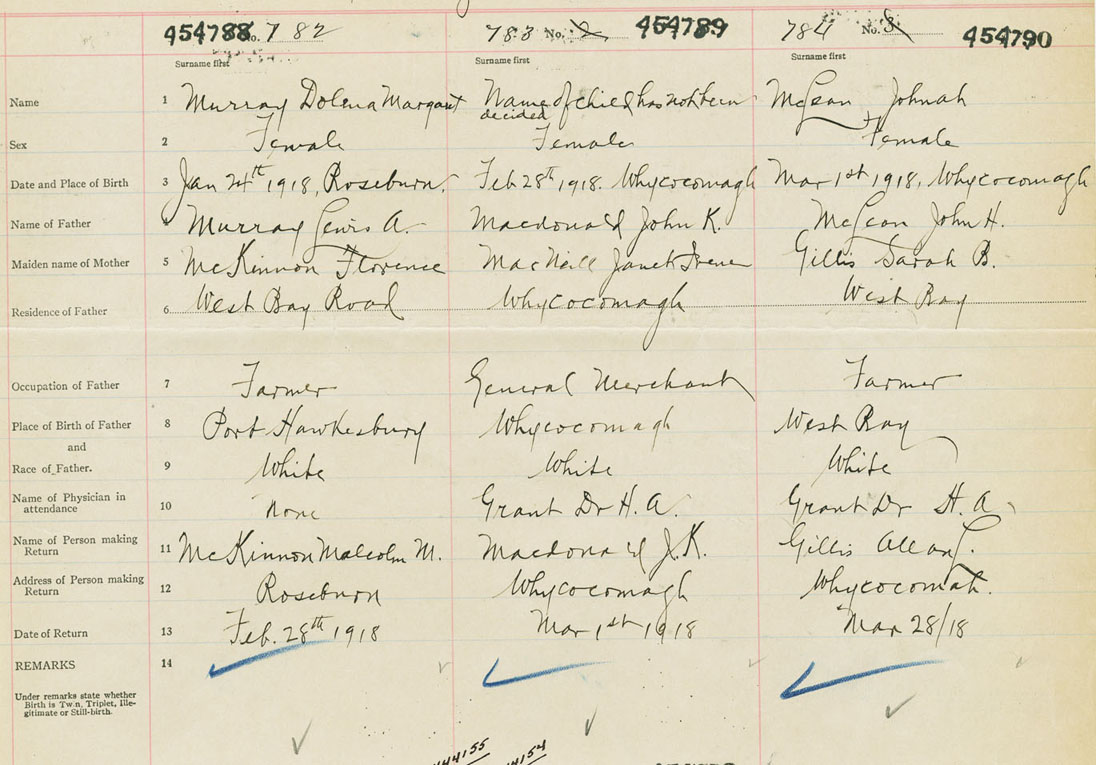 454788 No. 782 783 No. 2 454789 784 No. 3 454790
Surname first Surname first Surname first
Name 1 Murray Dolena Margaret Name of child has not been decided McLean Johnah
Sex 2 Female Female Female
Date and Place of Birth 3 Jan 24th 1918, Roseburn. Feb 28th 1918. Whycocomagh Mar 1st 1918, Whycocomagh
Name of Father 4 Murray Lewis A. Macdonald John K. McLean John H.
Maiden name of Mother 5 McKinnon Florence MacNeill Janet Irene Gillis Sarah B.
Residence of Father 6 West Bay Road Whycocomagh West Bay
Occupation of Father 7 Farmer General Merchant Farmer
Place of Birth of Father 8 Port Hawkesbury Whycocomagh West Bay
and
Race of Father. 9 White White White
Name of Physician in attendance 10 None Grant Dr H. A. Grant Dr H. A.
Name of Person making Return 11 McKinnon Malcolm M. Macdonald J.K. Gillis Allan L.
Address of Person making Return 12 Roseburn Whycocomagh Whycocomah.
Date of Return 13 Feb. 28th 1918 Mar 1st 1918 Mar 28/18
REMARKS 14
Under remarks state whether
Birth is Twin, Triplet, Ille-
gitimate or Still-birth.
44155 14154